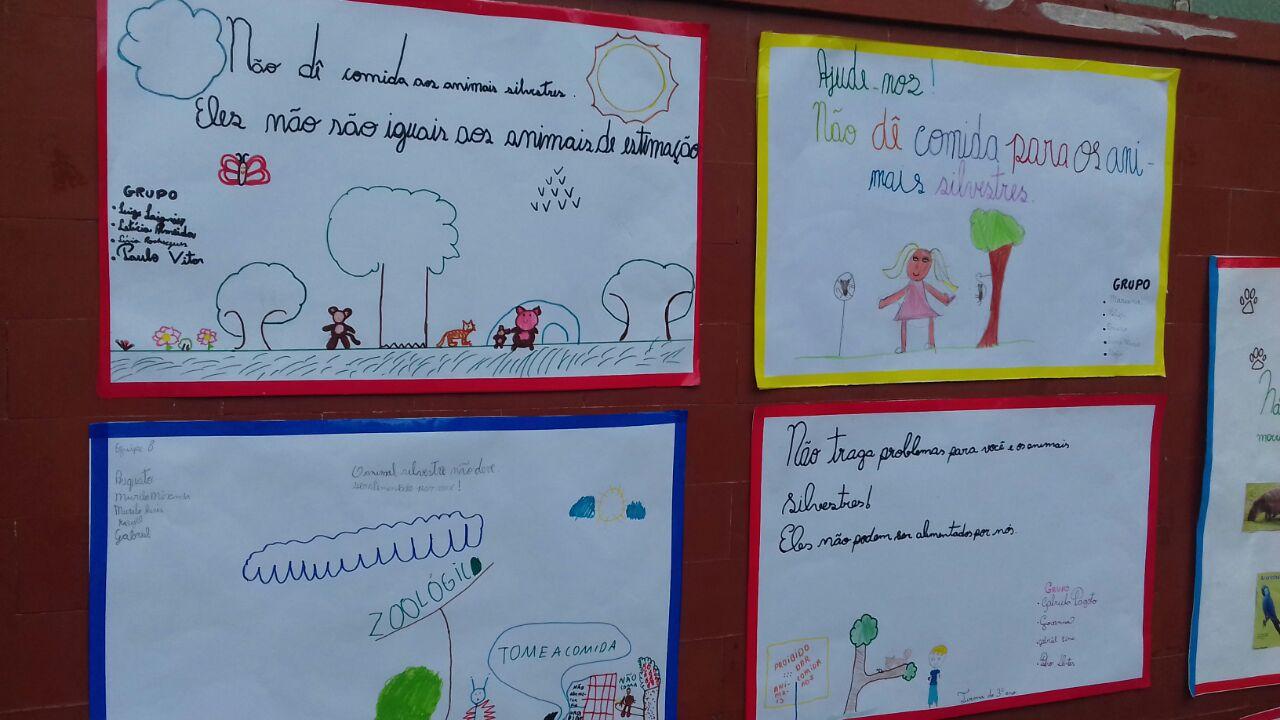 Não dê comida aos animais silvestres.
Eles não são iguais aos animais de estimação
GRUPO
Letícia Almeida
Lívia Rodrigues
Paulo Vitor
Ajude-nos!
Não dê comida para os ani-
mais silvestres.
GRUPO
Mariana
Equipe 8
Augusto
Murilo Miranda
Murilo
Gabriel
O animal silvestre não deve
ser alimentado por você!
ZOOLÓGICO
TOME A COMIDA
NÃO
NÃO
Não traga problemas para você e os animais
silvestres!
Eles não podem ser alimentados por nós.
GRUPO
Gabriela
Giovanna
PROIBIDO
DAR
COMIDA
AOS
ANI-
MAIS
Turma do 3º ano